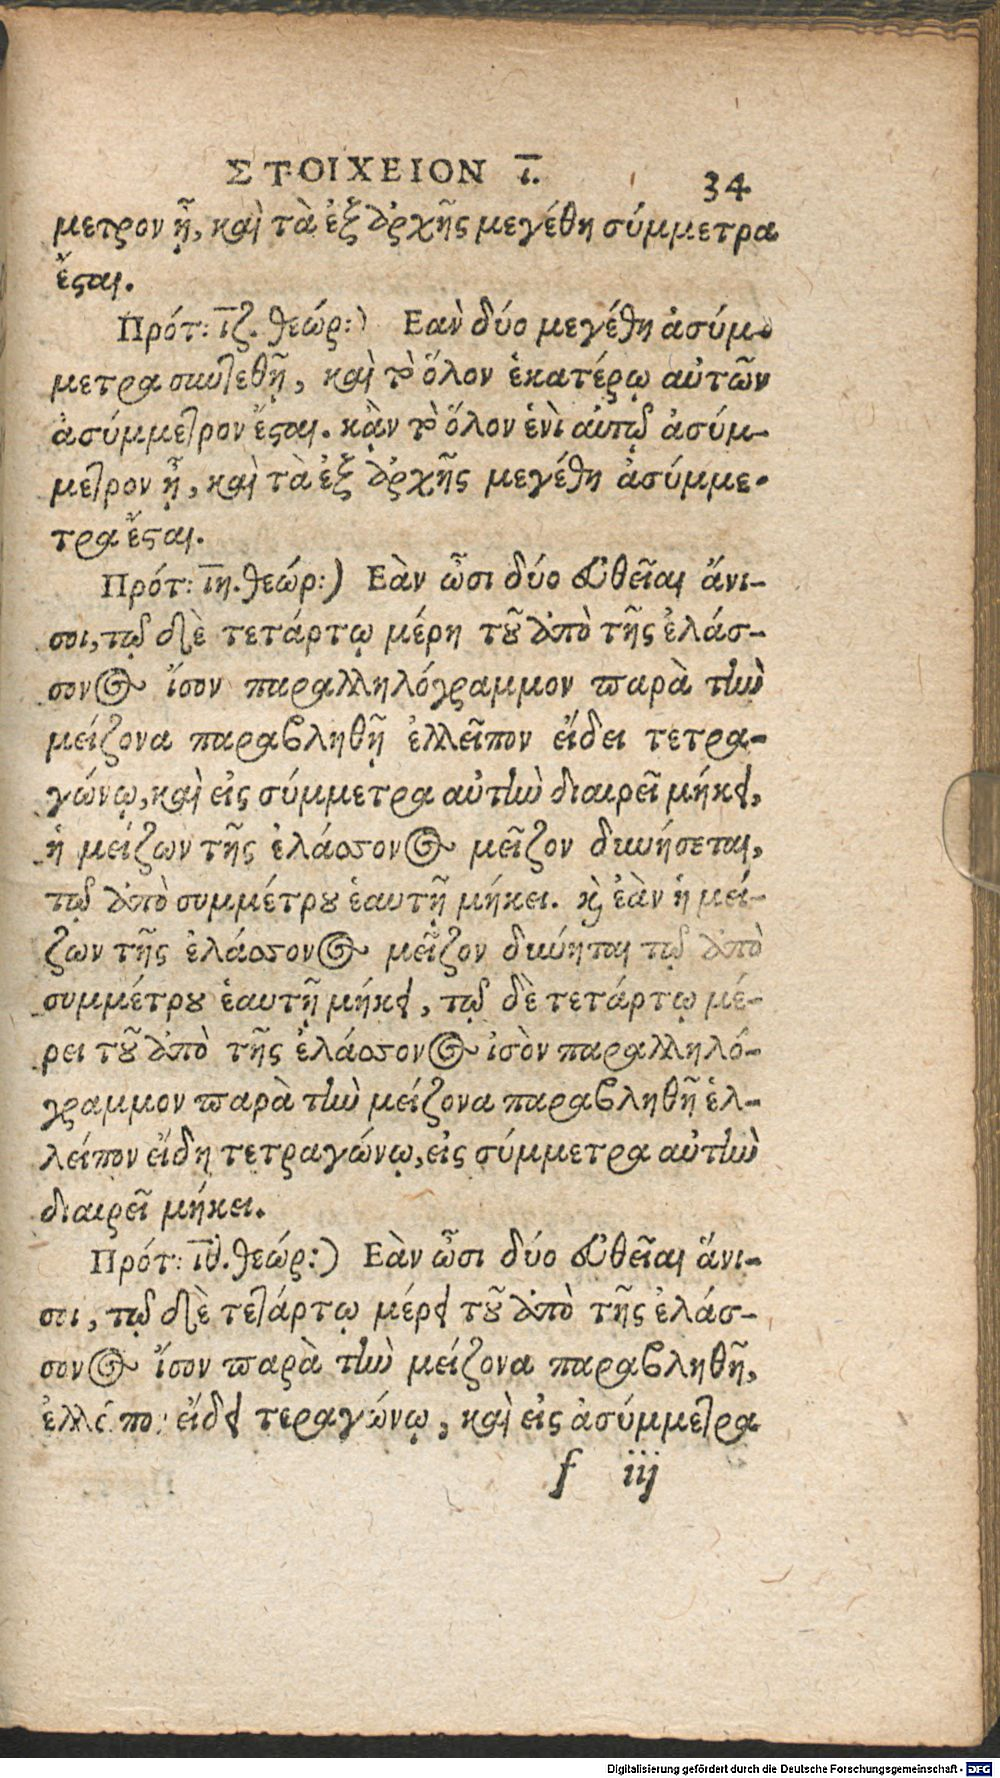 ΣΤΟΙΧΕΙΟΝ ι. 34
μετρον ᾖ, καὶ τὰ ἐξ ἀρχῆς μεγέθη σύμμετρα
ἔσται.
Πρότ: ιζ. θεώρ:) Εαν δύο μεγέθη ἀσύμ-
μετρα συντεθῇ, καὶ τὸ ὅλον ἑκατέρῳ αὐτῶν
ἀσύμμετρον ἔσται. κᾂν τὸ ὅλον ἑνὶ αὐτῷ ἀσύμ-
μετρον ᾖ, καὶ τὰ ἐξ ἀρχῆς μεγέθη ἀσύμμε-
τρα ἔσται.
Πρότ: ιη. θεώρ:) Εὰν ὦσι δύο εὐθεῖαι ἄνι-
σοι, τῷ δὲ τετάρτῳ μέρη τοῦ ἀπὸ τῆς ἐλάσ-
σονος ἴσον παραλληλόγραμμον παρὰ τὴν
μείζονα παραβληθῇ ἐλλεῖπον εἴδει τετρα-
γώνῳ, καὶ εἰς σύμμετρα αὐτὴν διαιρεῖ μήκει,
ἡ μείζων τῆς ἐλάσσονος μεῖζον δυνήσεται,
τῷ ἀπὸ συμμέτρου ἑαυτῇ μήκει. καὶ ἐὰν ἡ μεί-
ζων τῆς ἐλάσσονος μεῖζον δύνηται τῷ ἀπὸ
συμμέτρου ἑαυτῇ μήκει, τῷ δὲ τετάρτῳ μέ-
ρει τοῦ ἀπὸ τῆς ἐλάσσονος ἰσὸν παραλληλό-
γραμμον παρὰ τὴν μείζονα παραβληθῇ ἐλ-
λείπον εἴδη τετραγώνῳ, εἰς σύμμετρα αὐτὴν
διαιρεῖ μήκει.
Πρότ: ιθ. θεώρ:) Εὰν ὦσι δύο εὐθεῖαι ἄνι-
σοι, τῷ δὲ τετάρτῳ μέρει τοῦ ἀπὸ τῆς ἐλάσ-
σονος ἴσον παρὰ τὴν μείζονα παραβληθῇ,
εἴδει τεραγώνῳ, καὶ εἰς ἀσύμμετρα
f iij
Digitalisierung gefördert durch die Deutsche Forschungsgemeinschaft - DFG